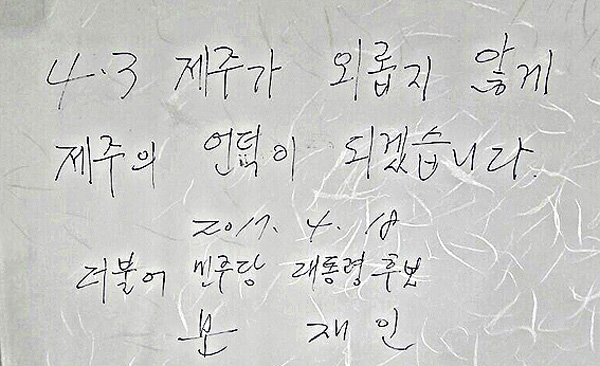 4·3 제주가 외롭지 않게
제주의 언덕이 되겠습니다.
2017. 4. 18
더불어 민주당 대통령후보
문 재 인